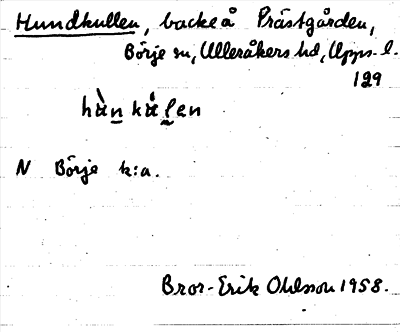 Hundkullen, backe å Prästgården,
Börje sn, Ulleråkers hd, Upps. l.
129
hàn kålen
N Börje k:a.
Bror-Erik Ohlsson 1958.